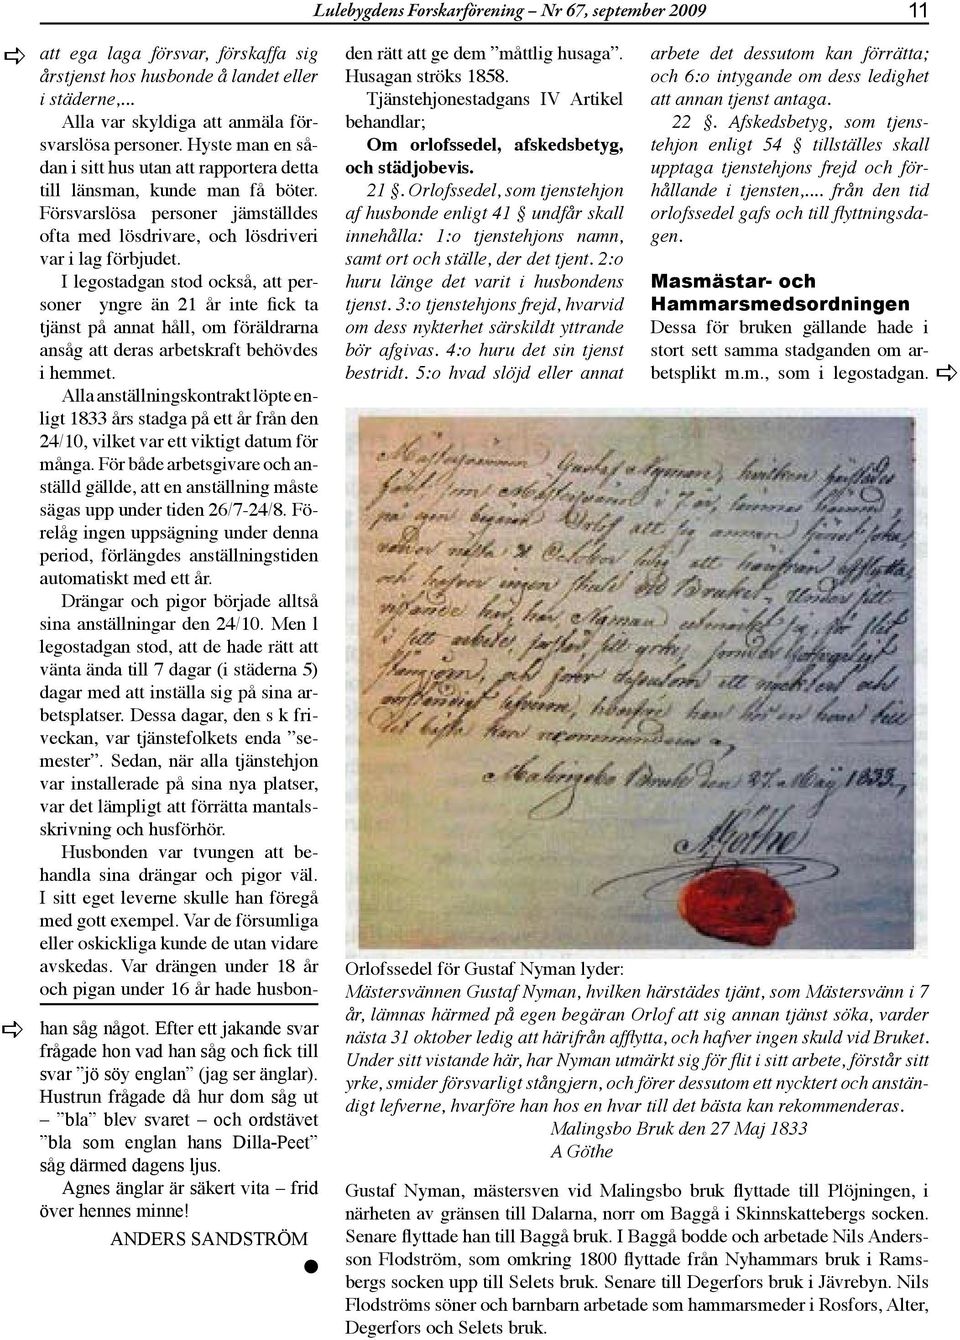 Lulebygdens Forskarförening – Nr 67, september 2009
11
att ega laga försvar, förskaffa sig
årstjenst hos husbonde å landet eller
i städerne,...
Alla var skyldiga att anmäla för-
svarslösa personer. Hyste man en så-
dan i sitt hus utan att rapportera detta
till länsman, kunde man få böter.
Försvarslösa personer jämställdes
ofta med lösdrivare, och lösdriveri
var i lag förbjudet.
I legostadgan stod också, att per-
soner yngre än 21 år inte fick ta
tjänst på annat håll, om föräldrarna
ansåg att deras arbetskraft behövdes
i hemmet.
Alla anställningskontrakt löpte en-
ligt 1833 års stadga på ett år från den
24/10, vilket var ett viktigt datum för
många. För både arbetsgivare och an-
ställd gällde, att en anställning måste
sägas upp under tiden 26/7-24/8. Fö-
relåg ingen uppsägning under denna
period, förlängdes anställningstiden
automatiskt med ett år.
Drängar och pigor började alltså
sina anställningar den 24/10. Men l
legostadgan stod, att de hade rätt att
vänta ända till 7 dagar (i städerna 5)
dagar med att inställa sig på sina ar-
betsplatser. Dessa dagar, den s k fri-
veckan, var tjänstefolkets enda ”se-
mester”. Sedan, när alla tjänstehjon
var installerade på sina nya platser,
var det lämpligt att förrätta mantals-
skrivning och husförhör.
Husbonden var tvungen att be-
handla sina drängar och pigor väl.
I sitt eget leverne skulle han föregå
med gott exempel. Var de försumliga
eller oskickliga kunde de utan vidare
avskedas. Var drängen under 18 år
och pigan under 16 år hade husbon-
han såg något. Efter ett jakande svar
frågade hon vad han såg och fick till
svar ”jö söy englan” (jag ser änglar).
Hustrun frågade då hur dom såg ut
– ”bla” blev svaret – och ordstävet
”bla som englan hans Dilla-Peet”
såg därmed dagens ljus.
Agnes änglar är säkert vita – frid
över hennes minne!
ANDERS SANDSTRÖM
den rätt att ge dem ”måttlig husaga”.
Husagan ströks 1858.
Tjänstehjonestadgans IV Artikel
behandlar;
Om orlofssedel, afskedsbetyg,
och städjobevis.
21 §. Orlofssedel, som tjenstehjon
af husbonde enligt 41 § undfår skall
innehålla: 1:o tjenstehjons namn,
samt ort och ställe, der det tjent. 2:o
huru länge det varit i husbondens
tjenst. 3:o tjenstehjons frejd, hvarvid
om dess nykterhet särskildt yttrande
bör afgivas. 4:o huru det sin tjenst
bestridt. 5:o hvad slöjd eller annat
arbete det dessutom kan förrätta;
och 6:o intygande om dess ledighet
att annan tjenst antaga.
22 §. Afskedsbetyg, som tjens-
tehjon enligt 54 § tillställes skall
upptaga tjenstehjons frejd och för-
hållande i tjensten,.... från den tid
orlofssedel gafs och till flyttningsda-
gen.
Masmästar- och
Hammarsmedsordningen
Dessa för bruken gällande hade i
stort sett samma stadganden om ar-
betsplikt m.m., som i legostadgan.
Mästersvännen Gustaf Nyman, hvilken härstädes
tjänt, som Mästersvänn i 7 år, lämnas härmed,
på egen begäran Orlof att sig annan tjänst söka,
varder nästa 31 October ledig att härifrån afflytta,
och hafver ingen skuld vid Bruket. Under sitt
vistande här, har Nyman utmärkt sig för flit
i sitt arbete, förstår sitt yrke, smider försvarligt
stångjern, och förer dessutom ett nycktert och
anständigt lefverne, hvarföre han hos en hvar till
det bästa kan recommenderas,
Malingsbo Bruk den 27. Maÿ 1833.
A Göthe
Orlofssedel för Gustaf Nyman lyder:
Mästersvännen Gustaf Nyman, hvilken härstädes tjänt, som Mästersvänn i 7
år, lämnas härmed på egen begäran Orlof att sig annan tjänst söka, varder
nästa 31 oktober ledig att härifrån afflytta, och hafver ingen skuld vid Bruket.
Under sitt vistande här, har Nyman utmärkt sig för flit i sitt arbete, förstår sitt
yrke, smider försvarligt stångjern, och förer dessutom ett nycktert och anstän-
digt lefverne, hvarföre han hos en hvar till det bästa kan rekommenderas.
Malingsbo Bruk den 27 Maj 1833
A Göthe
Gustaf Nyman, mästersven vid Malingsbo bruk flyttade till Plöjningen, i
närheten av gränsen till Dalarna, norr om Baggå i Skinnskattebergs socken.
Senare flyttade han till Baggå bruk. I Baggå bodde och arbetade Nils Anders-
son Flodström, som omkring 1800 flyttade från Nyhammars bruk i Rams-
bergs socken upp till Selets bruk. Senare till Degerfors bruk i Jävrebyn. Nils
Flodströms söner och barnbarn arbetade som hammarsmeder i Rosfors, Alter,
Degerfors och Selets bruk.